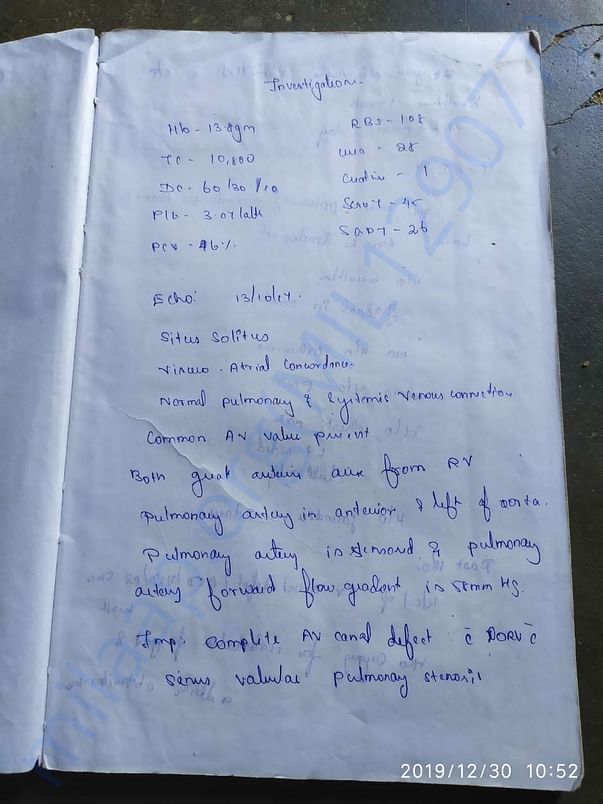 Investigation-
Hb - 13.8gm
RBS - 108
TC - 10,800
urea - 28
DC - 60/30/10
Creatine - 1
Plt - 3.07 lakh
SGOT - 45
PCV - 46%
SGPT - 26
Echo: 13/10/17.
Situs Solitus
Viscero - Atrial Concordance.
Normal pulmonary & Systemic Venous connection
Common AV valve present
Both great arteries arise from RV
Pulmonary artery in anterior & left of aorta.
Pulmonary artery is stenosed & pulmonary
artery forward flow gradent is 58mm Hg.
Imp: Complete AV canal defect c̄ DORV c̄
severe valvular pulmonary stenosis
2019/12/30 10:52